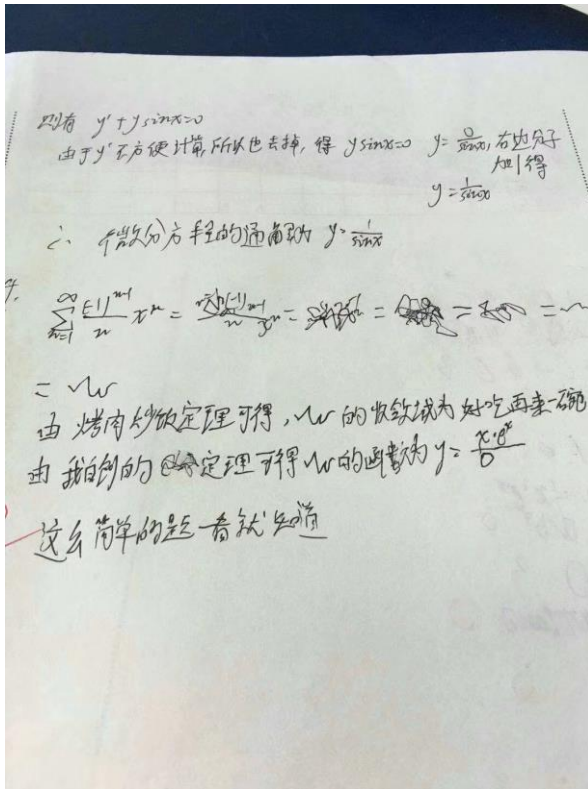 则有 y'+ysinx=0
由于y'不方便计算,所以也去掉,得 ysinx=0 y=0/sinx,右边分子
加1得
y=1/sinx
∴ 微分方程的通解为 y=1/sinx
∑_{n=1}^{∞} (-1)^{n-1}/n x^n = = = = =
=
由烤肉炒饭定理可得, 的收敛域为好吃再来一碗
由我自创的定理可得 的函数为 y=x·e^x/0
这么简单的题一看就知道